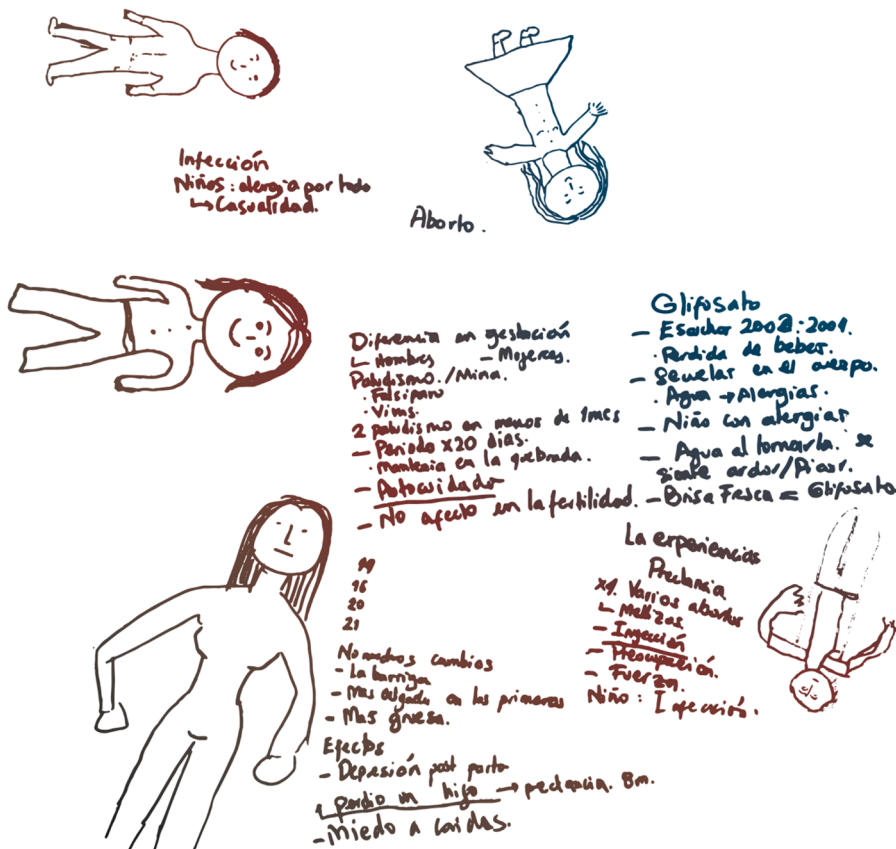 Infección
Niños: alergia por todo
↳ Casualidad.
Aborto.
Diferencia en gestación
↳ Hombres - Mujeres.
Paludismo./Mina.
· Falsiparo
· Virus.
2 paludismo en menos de 1mes
- Periodo x20 dias.
· mantenia en la quebrada.
- Autocuidador
- No afecto en la fertilidad.
Glifosato
- Escuchar 2002:2001.
· Perdida de bebes.
- Secuelas en el cuerpo.
· Agua → Alergias.
- Niño con alergias
- Agua al tomarla. se
siente ardor/Picor.
- Brisa Fresca = Glifosato
La experiencias
Preclancia
x1. Varios abortos
↳ Mellizas
- Inyección
- Preocupación.
- Fuerza.
Niño: Infección.
16
20
21
No muchos cambios
- La barriga
- Mas delgada en las primeras
- Mas gruesa.
Efectos
- Depresión post parto
perdio un hijo → peclancia. 8m.
- Miedo a caidas.